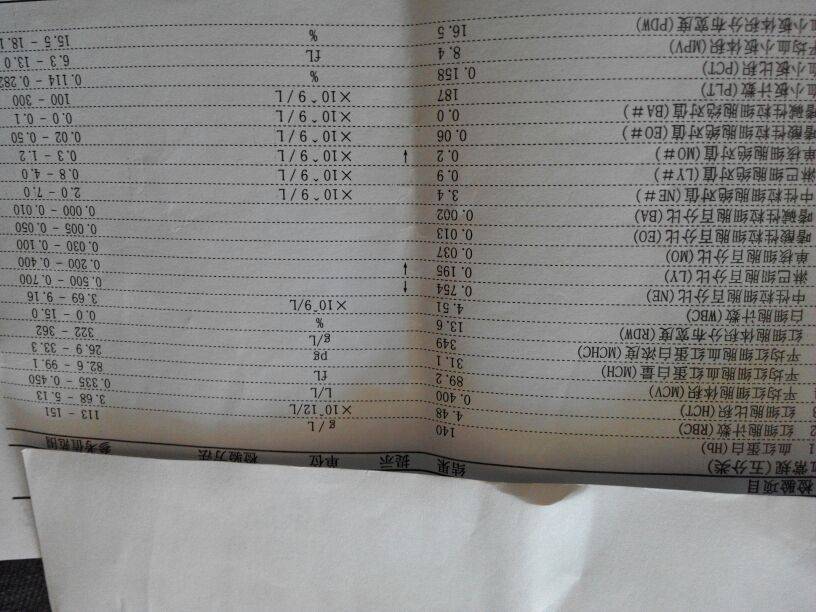 检验项目 结果 提示 单位 检验方法 参考值范围
血常规(五分类)
1 血红蛋白(Hb) 140 g/L 113 - 151
2 红细胞计数(RBC) 4.48 ×10^12/L 3.68 - 5.13
3 红细胞比积(HCT) 0.400 L/L 0.335 - 0.450
平均红细胞体积(MCV) 89.2 fL 82.6 - 99.1
平均红细胞血红蛋白量(MCH) 31.1 pg 26.9 - 33.3
平均红细胞血红蛋白浓度(MCHC) 349 g/L 322 - 362
红细胞体积分布宽度(RDW) 13.6 % 0.0 - 15.0
白细胞计数(WBC) 4.51 ×10^9/L 3.69 - 9.16
中性粒细胞百分比(NE) 0.754 ↑ 0.500 - 0.700
淋巴细胞百分比(LY) 0.195 ↓ 0.200 - 0.400
单核细胞百分比(MO) 0.037 0.030 - 0.100
嗜酸性粒细胞百分比(EO) 0.013 0.005 - 0.050
嗜碱性粒细胞百分比(BA) 0.002 0.000 - 0.010
中性粒细胞绝对值(NE#) 3.4 ×10^9/L 2.0 - 7.0
淋巴细胞绝对值(LY#) 0.9 ×10^9/L 0.8 - 4.0
单核细胞绝对值(MO#) 0.2 ↓ ×10^9/L 0.3 - 1.2
嗜酸性粒细胞绝对值(EO#) 0.06 ×10^9/L 0.02 - 0.50
嗜碱性粒细胞绝对值(BA#) 0.0 ×10^9/L 0.0 - 0.1
血小板计数(PLT) 187 ×10^9/L 100 - 300
血小板比积(PCT) 0.158 % 0.114 - 0.282
平均血小板体积(MPV) 8.4 fL 6.3 - 13.0
血小板体积分布宽度(PDW) 16.5 % 15.5 - 18.1